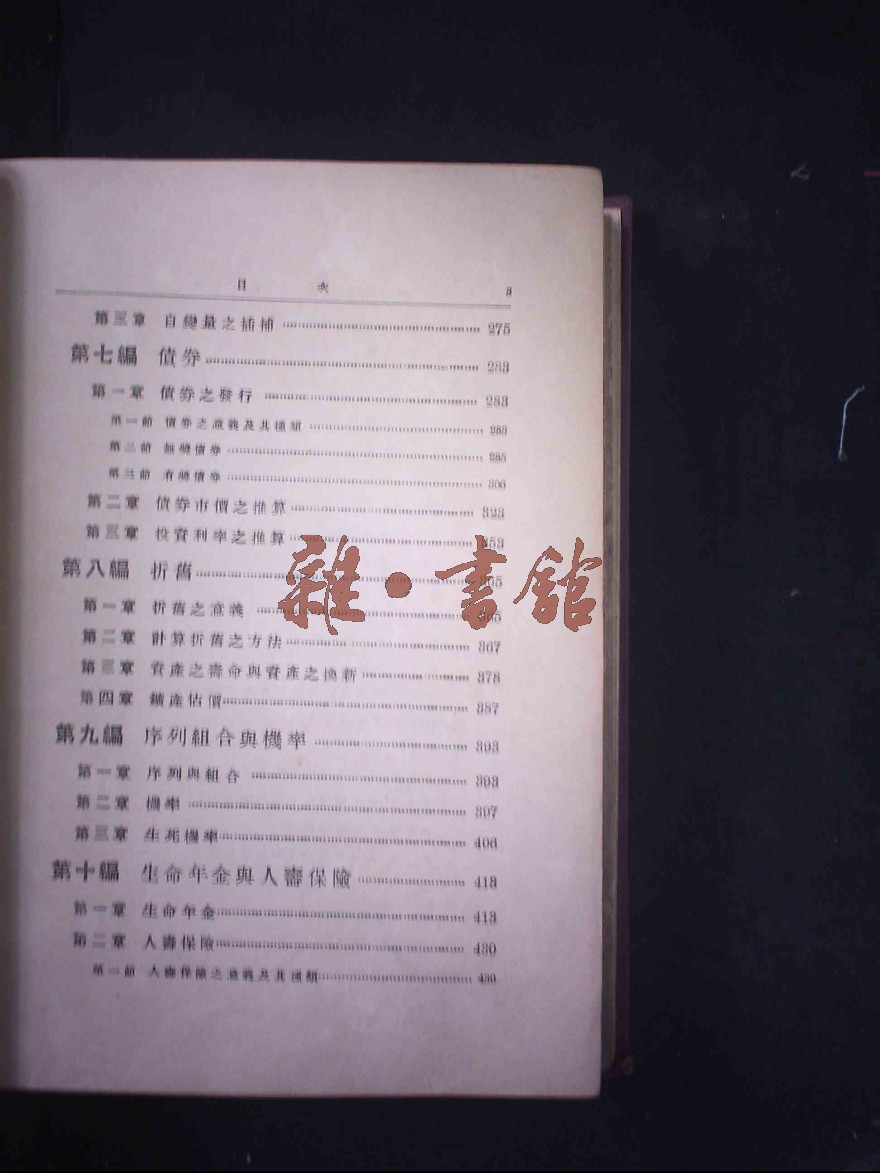 目 次 3
第三章 自變量之插補 275
第七編 債券 283
第一章 債券之發行 283
第一節 債券之意義及其種類 283
第二節 無獎債券 285
第三節 有獎債券 306
第二章 債券市價之推算 323
第三章 投資利率之推算 353
第八編 折舊 365
雜·書館
第一章 折舊之意義 365
第二章 計算折舊之方法 367
第三章 資產之壽命與資產之換新 378
第四章 鑛產估價 387
第九編 序列組合與機率 393
第一章 序列與組合 393
第二章 機率 397
第三章 生死機率 406
第十編 生命年金與人壽保險 413
第一章 生命年金 413
第二章 人壽保險 430
第一節 人壽保險之意義及其種類 430